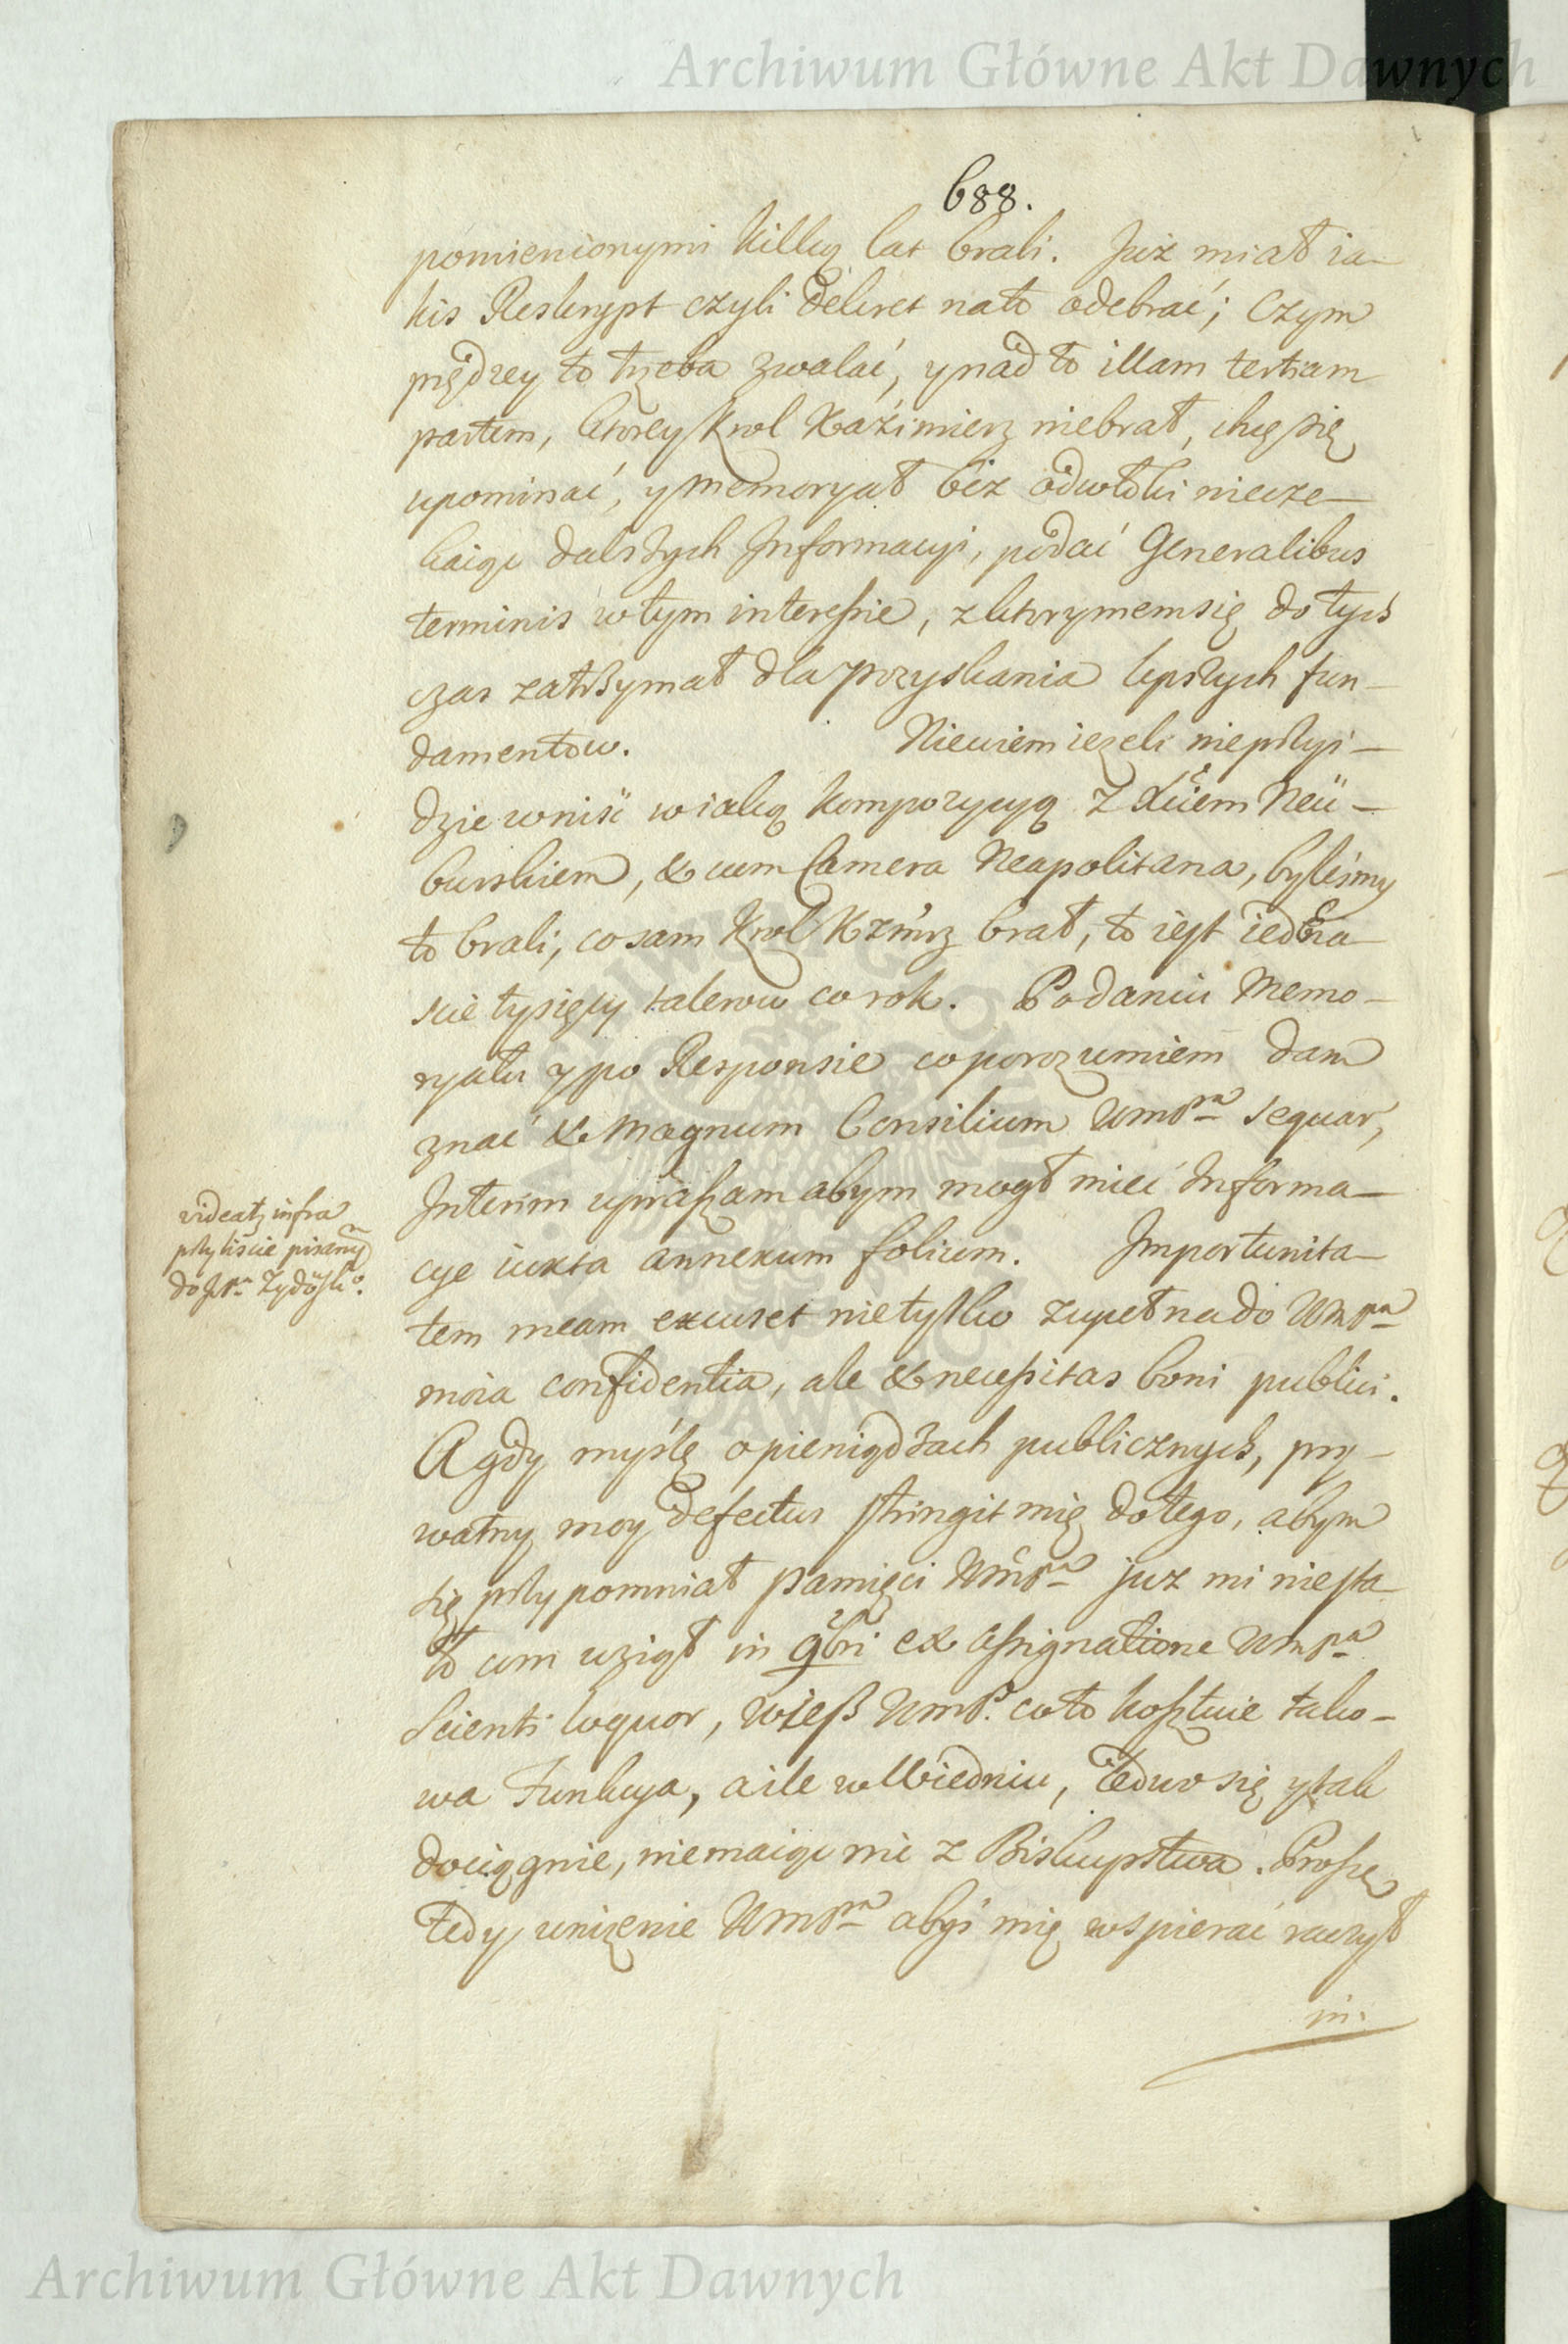 Archiwum Główne Akt Dawnych
688.
pomienionymi kilką lat brali. Już miał ia-
kis Reskrypt czyli dekret nato odebrać; Czym
prędzey to trzeba zwalać, y nad to illam tertiam
partem, ktorey Krol Kaźimierz niebrał, chcę się
upominać, y memoryał bez odwłoki niecze-
kaiąc dalszych Informacyi, podać Generalibus
terminis w tym interessie, z ktorymem się do tych
czas zatrzymał dla pozyskania lepszych fun-
damentow. Niewiem iezeli nieprzyi-
dzie wniść w iaką kompozycyą z Xciem Neü-
burskiem, & cum Camera Neapolitana, byleśmy
to brali, co sam Krol Kzmrz brał, to iest iedena-
scie tysięcy talerow co rok. Po daniu Memo-
ryału y po Responsie co porozumiem dam
znać & Magnum Consilium WmPna sequar,
Interim upraszam abym mogł mieć Informa-
cye iuxta annexum folium. Importunita-
tem meam excuset nietylko zupełna do WmPna
moia confidentia, ale & necessitas boni publici.
A gdy myślę o pieniądzach publicznych, pry-
watny moy defectus stringit mię do tego, abym
się przypomniał pamięci WmPna juz mi niesta-
ło com wziął in 9bri ex assignatione WmPna
Scienti loquor, wiesz WmP. co to kosztuie tako-
wa Funkcya, a ile w Wiedniu, ledwo się y tak
dociągnie, niemaiąc nic z Biskupstwa. Proszę
tedy unizenie WmPna abyś mię wspierać raczył
in.
videatz infra
przy liscie pisanym
do JPna
Archiwum Główne Akt Dawnych